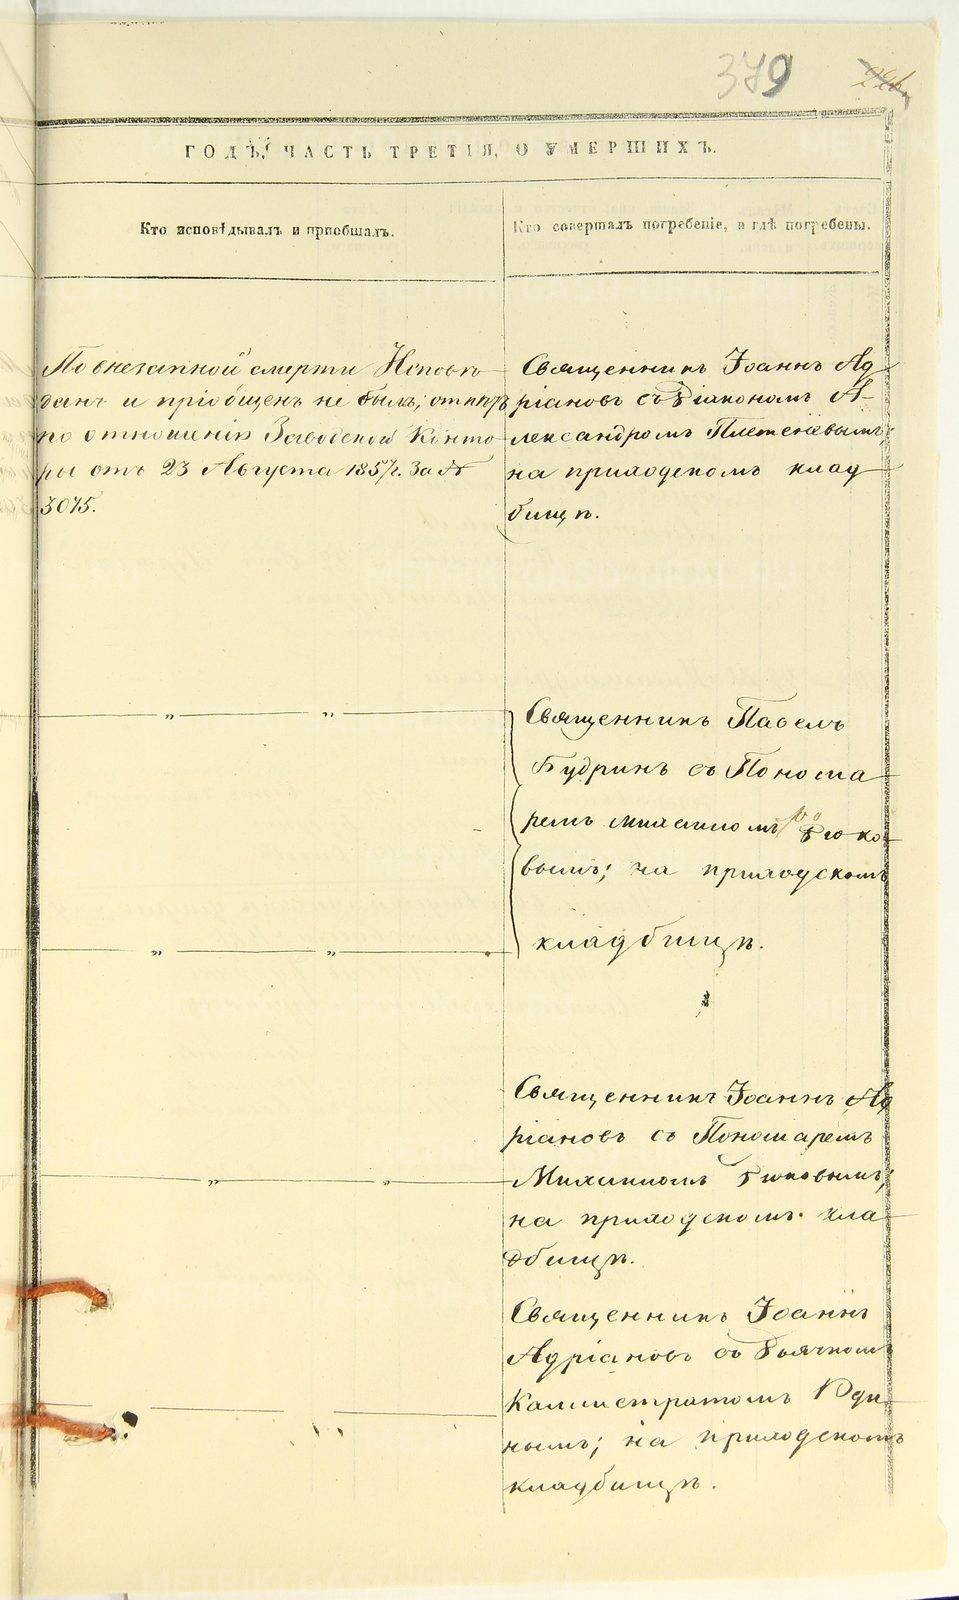 379
ГОДѢ, ЧАСТЬ ТРЕТІЯ, О УМЕРШИХЪ.
Кто исповѣдывалъ и приобщалъ.
Кто совершалъ погребеніе, и гдѣ погребены.
По внезапной смерти Исповѣ
данъ и пріобщенъ не былъ;
по отношенію Заводской Конто
ры отъ 23 Августа 1857 г. за №
3075.
Священникъ Іоаннъ Ад
ріановъ съ Діакономъ А-
лександромъ Плетеневымъ;
на приходскомъ клад
бищѣ.
„ „
Священникъ Павелъ
Будринъ съ Понома
ремъ Михаиломъ
вымъ; на приходскомъ
кладбищѣ.
„ „
Священникъ Іоаннъ Ад
ріановъ съ Пономаремъ
Михаиломъ
на приходскомъ кла
дбищѣ.
„ „
Священникъ Іоаннъ
Адріановъ съ Дьячкомъ
Каллистратомъ
нымъ; на приходскомъ
кладбищѣ.
METRIKI.GASO-URAL.RU